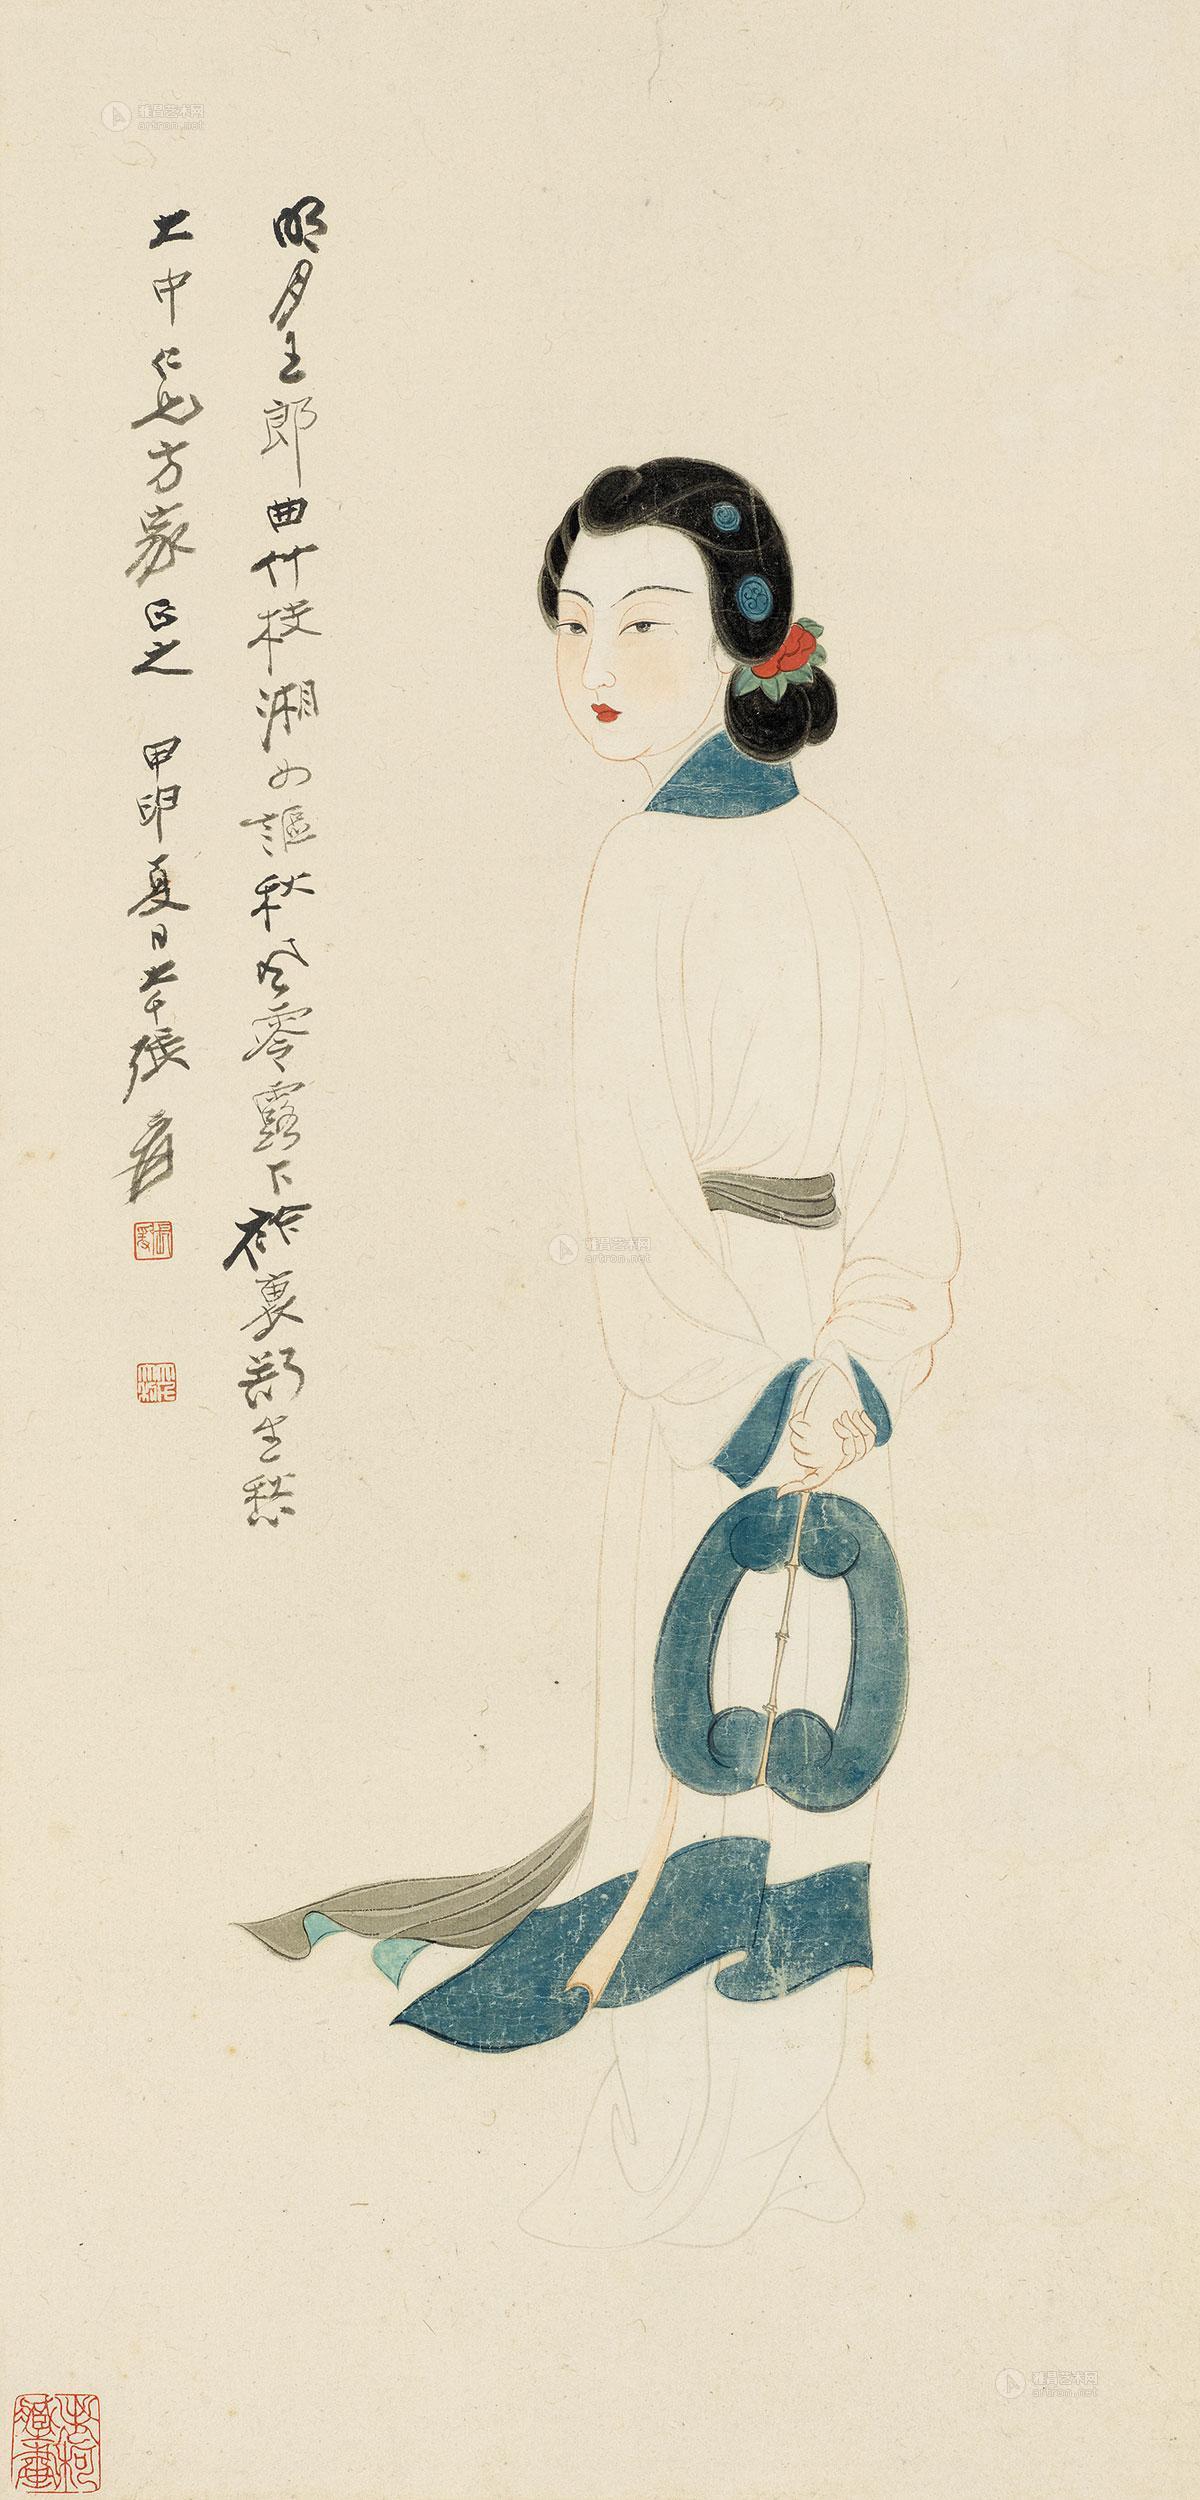 雅昌艺术网
artron.net
明月王郎曲竹枝湘女謳秋風零露下裏生愁
大中仁兄方家正之 甲卯夏日大千張爰
張爰
雅昌艺术网
artron.net
雅昌艺术网
artron.net